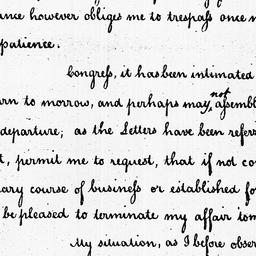 ance however obliges me to trespass once m
patience.
Congress, it has been intimated
urn to morrow, and perhaps may, not assembl
departure; as the Letters have been refer
t, permit me to request, that if not co
nary course of business or established fo
be pleased to terminate my affair tom
My situation, as I before obser